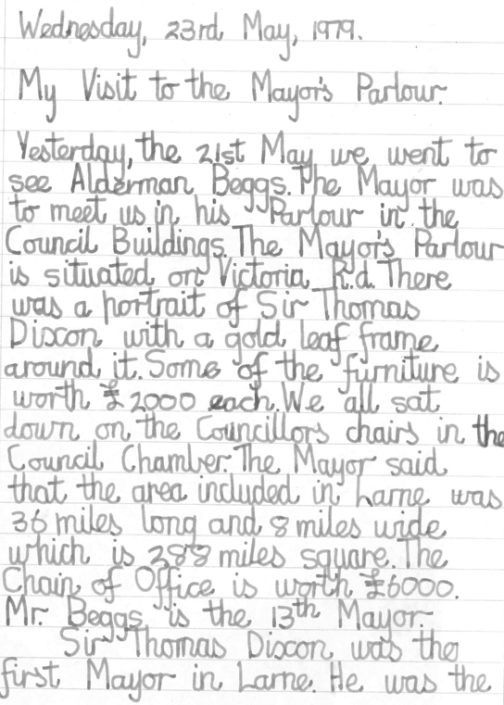 Wednesday, 23rd May, 1979.
My Visit to the Mayor's Parlour.
Yesterday, the 21st May we went to
see Alderman Beggs. The Mayor was
to meet us in his Parlour in the
Council Buildings. The Mayor's Parlour
is situated on Victoria R.d. There
was a portrait of Sir Thomas
Dixon with a gold leaf frame
around it. Some of the furniture is
worth £2000 each. We all sat
down on the Councillors chairs in the
Council Chamber. The Mayor said
that the area included in Larne was
36 miles long and 8 miles wide
which is 288 miles square. The
Chain of Office is worth £6000.
Mr. Beggs is the 13th Mayor.
Sir Thomas Dixon was the
first Mayor in Larne. He was the